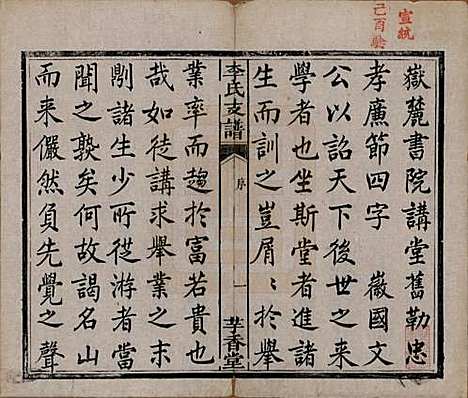 嶽麓書院講堂舊勒忠
孝廉節四字 徽國文
公以詔天下後世之来
學者也坐斯堂者進諸
生而訓之豈屑屑於舉
李氏支譜
序
一
芋香堂
業率而趨於富若貴也
哉如徒講求舉業之末
則諸生少所從游者當
聞之孰矣何故謁名山
而来儼然負先覺之聲
宣統
己酉